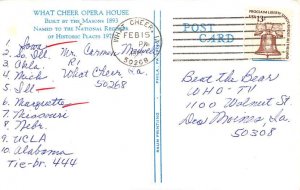 WHAT CHEER OPERA HOUSE
BUILT BY THE MASONS 1893
NAMED TO THE NATIONAL REGISTER
OF HISTORIC PLACES
WHAT CHEER, IA
FEB 15
PM
50268
PROCLAIM LIBERTY
13c
POST
CARD
1. Iowa
2. So Ill.
3. Okla.
4. Mich
5. Ill
6. Marquette
7. Missouri
8. Nebr.
9. UCLA
10. Alabama
Tie-br. 444
Mr. Carmen
R1
What Cheer, Ia.
50268
Beat the Bear
WHO-TV
1100 Walnut St.
Des Moines, Ia.
50308